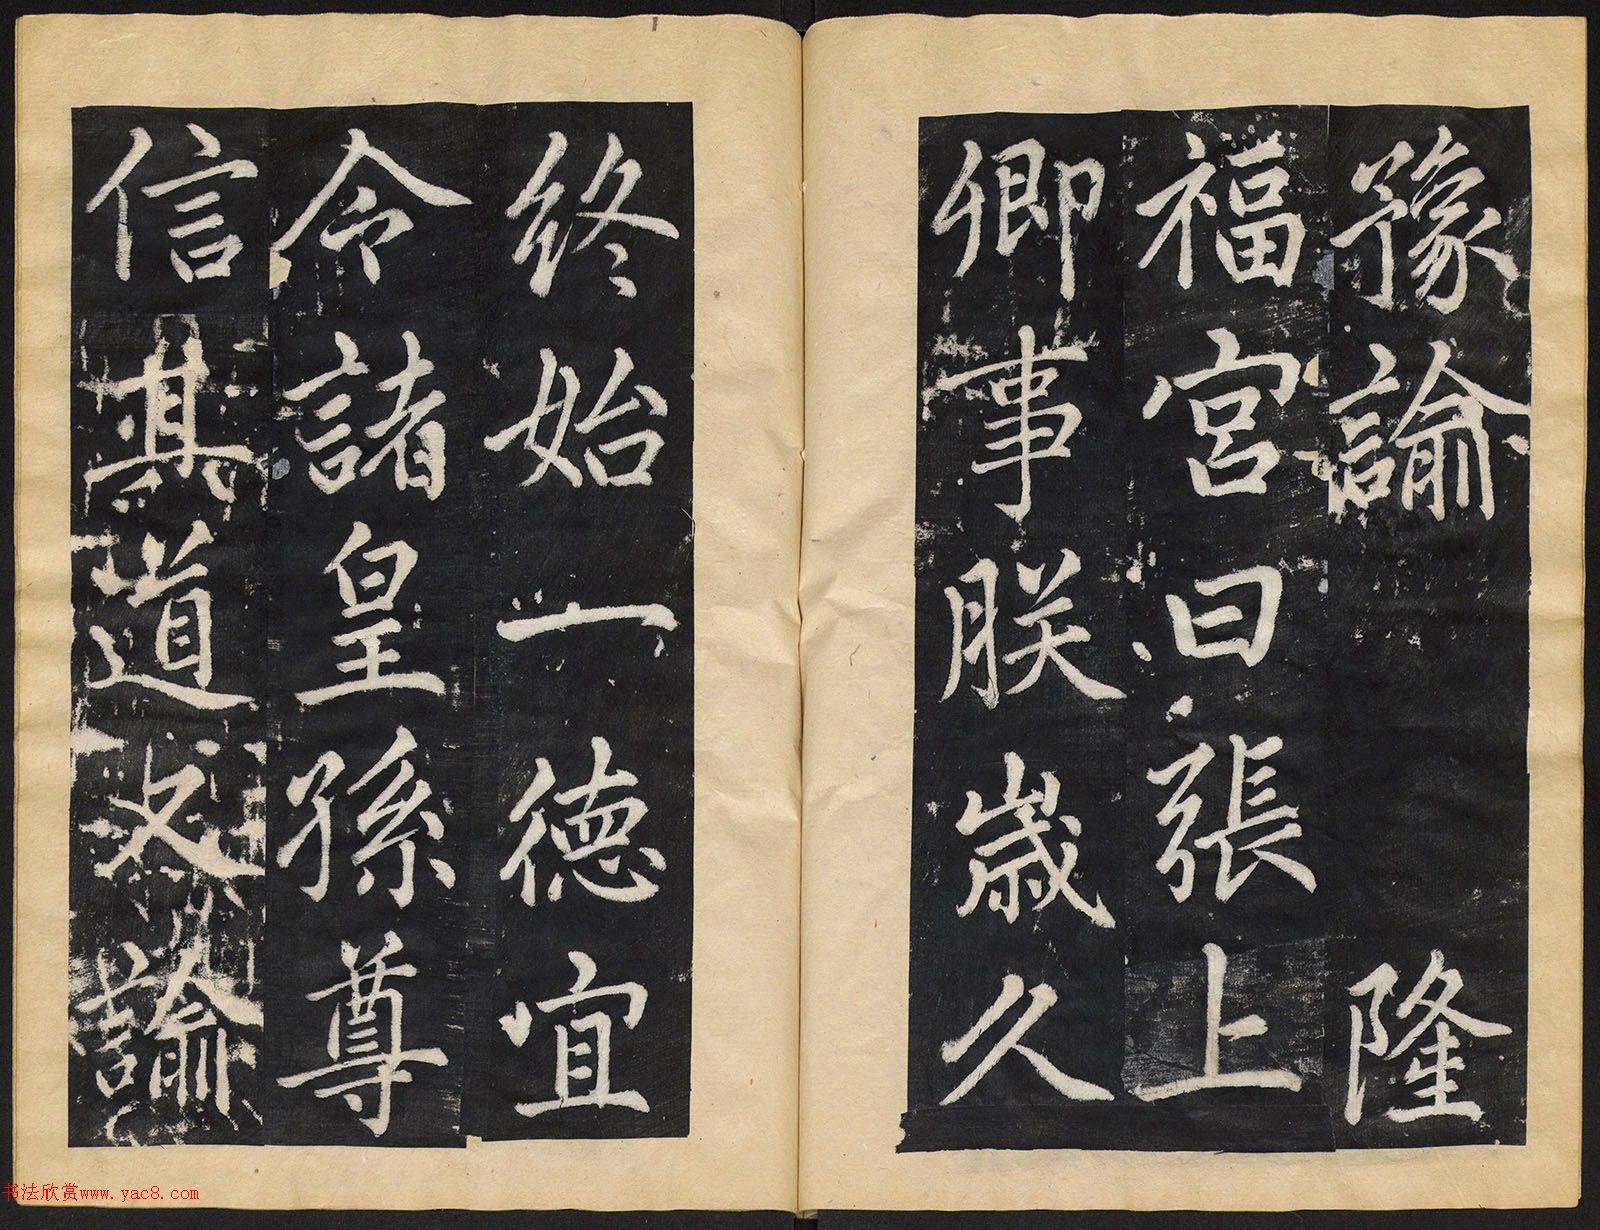 豫諭隆
福宮曰張上
卿事朕歲久
終始一德宜
令諸皇孫尊
信其道又諭
书法欣赏www.yac8.com